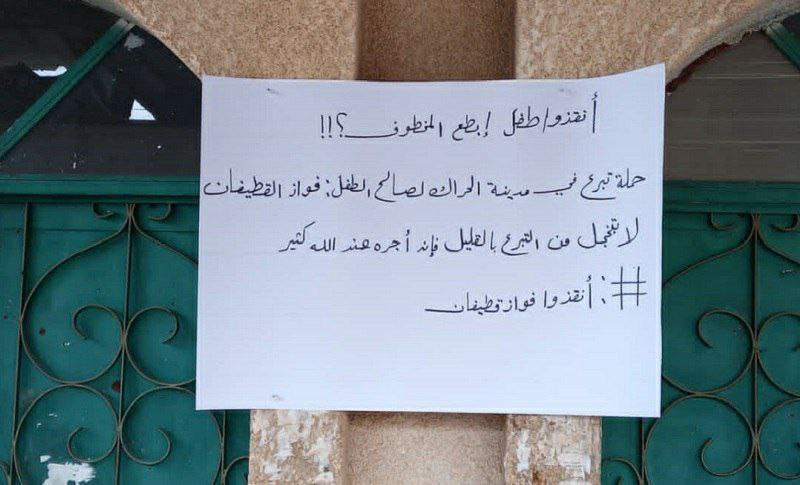 أنقذوا طفل إبطع المخطوف ؟!!
حملة تبرع في مدينة الحراك لصالح الطفل: فواز القطيفان
لا تخجل من التبرع بالقليل فإنه أجره عند الله كثير
#: أنقذوا فواز قطيفان